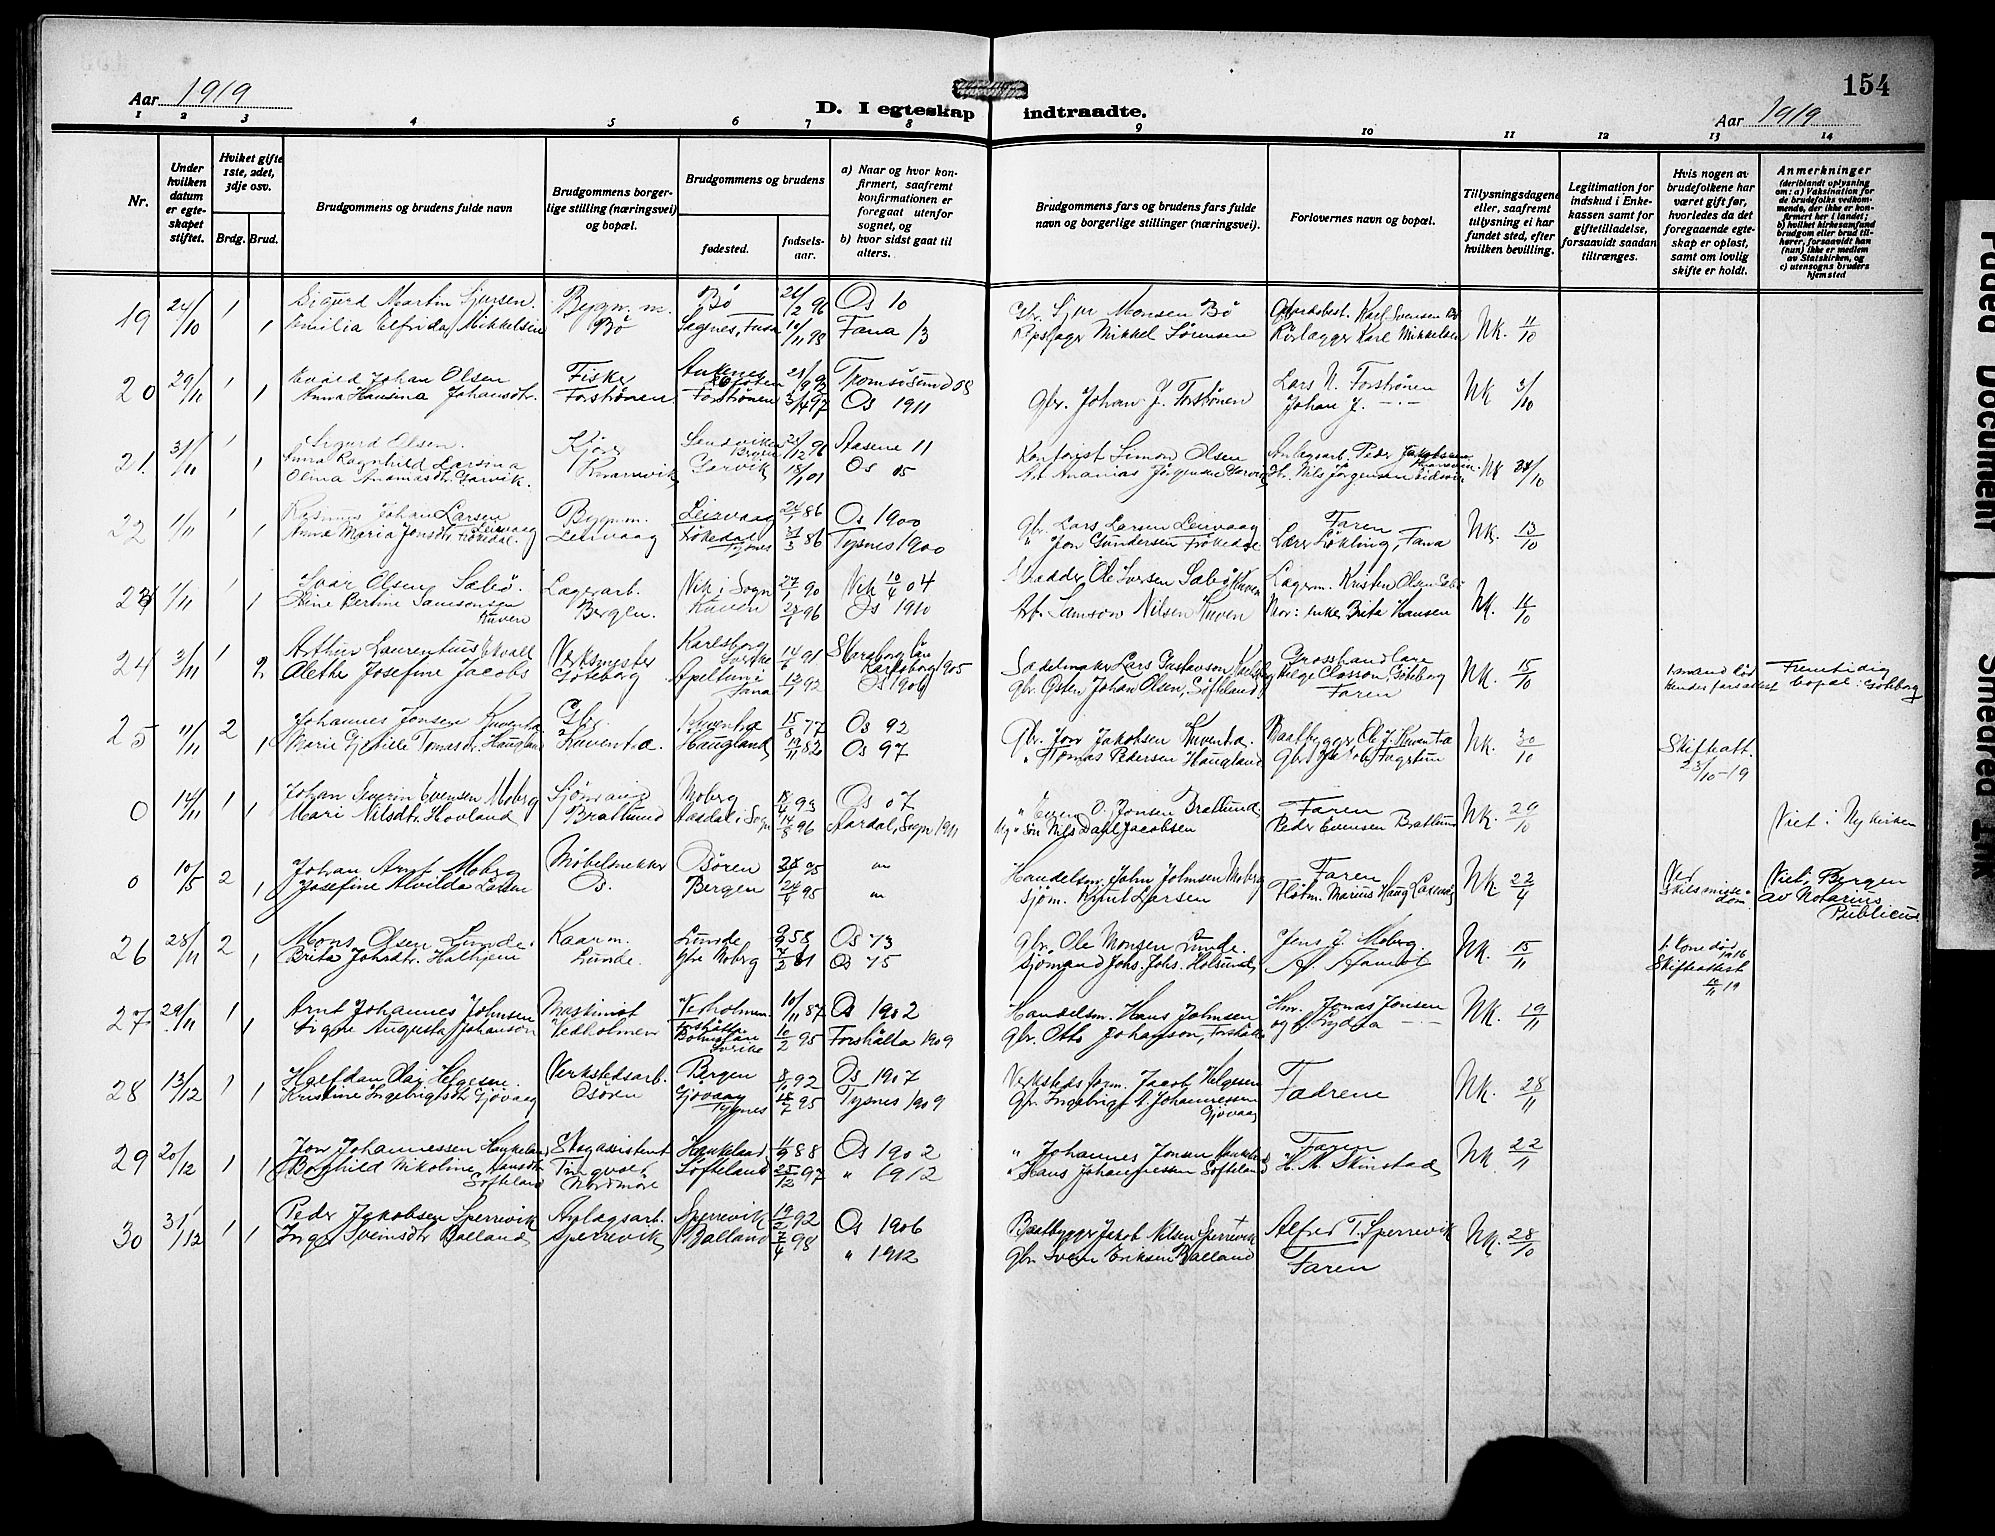 154
Aar 1919
D. I egteskap indtraadte.
Aar 1919
1 2 3 4 5 6 7 8 9 10 11 12 13 14
Nr.
Under hvilken datum er egteskapet stiftet.
Hviket gifte 1ste, 2det, 3dje osv.
Brdg. Brud.
Brudgommens og brudens fulde navn
Brudgommens borgerlige stilling (næringsvei) og bopæl.
Brudgommens og brudens
fødested. fødselsaar.
a) Naar og hvor konfirmert, saafremt konfirmationen er foregaat utenfor sognet, og
b) hvor sidst gaat til alters.
Brudgommens fars og brudens fars fulde navn og borgerlige stillinger (næringsvei).
Forlovernes navn og bopæl.
Tillysningsdagene eller, saafremt tillysning ei har fundet sted, efter hvilken bevilling.
Legitimation for indskud i Enkekassen samt for giftetilladelse, forsaavidt saadan tiltrænges.
Hvis nogen av brudefolkene har været gift før, hvorledes da det foregaaende egteskap er opløst, samt om lovlig skifte er holdt.
Anmerkninger
(deriblandt oplysning om: a) Vaksination for de brudefolks vedkommende, der ikke er konfirmert her i landet; b) hvilket kirkesamfund brudgom eller brud tilhører, forsaavidt han (hun) ikke er medlem av Statskirken, og c) utensogns bruders hjemsted
19 24/10 1 Sigurd Martin Sjursen. Bygn. m. Bø 26/2 96 Os 10 Gbr. Sjur Monsen Bø Karl Svensen Bø NK. 11/10
1 Emilia Elfrida Mikkelsen Bø Sagnes, Fusa 10/11 98 Fana 13 Repslager Mikkel Sørensen Rørlægger Karl Mikkelsen
20 29/11 1 Johan Olsen Fisker 21/9 93 Tromsøsund 08 Lars N. Forstrønen NK 3/10
1 Anna Hansina Johansdtr. Forstrønen Forstrønen 3/4 97 Os 1911 Gbr. Johan J. Forstrønen Johan J. —"—
21. 31/11 1 Sigurd Olsen. Sandviken Bergen 96 Aasene 11 Simon Olsen Anlegsarb. Peder Jakobsen NK 10
1 Anna Ragnhild Larsina Olina Ananiasdtr. Garvik. Garvik 18/1 01 Os 15 Arb. Ananias Jørgensen Garvik Nils Jørgensen
22 1/11 1 Rasmus Johan Larsen Leirvaag Bygnm. Leirvaag 86 Os 1900 Gbr. Lars Larsen Leirvaag Faren NK. 13/10
1 Anna Maria Jonsdtr. Frøkedal. Leirvaag Frøkedal Tysnes 3 86 Tysnes 1900 " Jon Gundersen Frøkedal Lærer Løkling, Fana
23 1/11 1 Ivar Olsen Sæbø. Lagerarb. Vik i Sogn 27/1 90 Vik 10/4 04 Ole Iversen Sæbø Lagerm. Kristen Olsen Sæbø NK. 11/10
1 Bertine Samsonsen Kuven Bergen. Kuven 27 96 Os 1910 Arb. Samson Nilsen Kuven Enke Brita Hansen
24 3/11 1 Arthur Laurentius Ekvall Verksmester Karlsborg Sverike 14/6 91 Skaraborg län Karlsborg 1905 Sadelmaker Lars Gustavson Grosshandlare Helge Classon, Göteborg NK. 15/10
2 Alethe Josefine Jacobs Göteborg Apeltun i Fana 12 92 Os 1906 Gbr. Østen Johan Olsen, Søfteland Faren 1. mand død Fremtidig bopæl: Göteborg
25 11/11 2 Johannes Jonsen Kuventræ Gbr. Kuventræ 15/8 77 Os 92 Gbr. Jon Jakobsen Kuventræ. Baatbygger Ole J. Kuventræ NK. 30/10 Skifteatt. 23/10-19
1 Marie Tomasdtr. Haugland Kuventræ. Haugland 82 Os 97 " Thomas Pedersen Haugland Gbr. Fagertun
0 14/11 1 Johan Severin Evensen Moberg Sjømand Moberg 18/4 93 Os 07 " Even O. Jonsen Bratlund Faren NK. 29/10
1 Mari Nilsdtr. Hovland Bratlund Aardal i Sogn 14/8 96 Aardal, Sogn 1911 Nils Dahl Jacobsen Peder Evensen Bratlund Viet i Nykirken
0 10/5 2 Johan Arnt Moberg Møbelsnekker Osøren 28/1 95 " Handelsm. John Johnsen Moberg Faren NK 22/4 Ved Skilsmisse-dom. Viet i Bergen av Notarius Publicus
1 Josefine Alvilda Larsen Os. Bergen 24 95 " Sjøm. Knut Larsen Marius Haug Laxevaag
26 28/11 2 Mons Olsen Lunde. Kaarm. Lunde 58 Os 73 Gbr. Ole Monsen Lunde. Jens J. Moberg. NK. 15/11 1. kone død 1916
1 Brita Johsdtr. Halhjem Lunde. Ytre Moberg 2 61 Os 75 Sjømand Johs. Johs. Holsund Skifteattest 11 19
27 29/11 1 Arnt Johannes Johnsen Maskinist Vedholmen 10/11 87 Os 1902 Handelsm. Hans Johnsen Hm. Jonas Jonsen NK. 19/11
1 Signe Augusta Johanson Vedholmen Forshälla Bohuslän Sverike 10/2 95 Forshälla 1909 Gbr. Otto Johanson, Forshälla og Lydia —"—
28 13/12 1 Halfdan Olaj Helgesen. Verkstedsarb. Bergen 8/10 92 Os 1907 Verkstedsform. Jacob Helgesen Fadrene NK. 28/11
1 Kristine Ingebrigtsdtr Gjøvaag Osøren Gjøvaag Tysnes 18/7 95 Tysnes 1909 Gbr. Ingebrigt Johannessen Gjøvaag
29 20/12 1 Jon Johannessen Haukeland Skogassistent Haukeland 11/9 88 Os 1902 " Johannes Jonsen Haukeland Faren NK. 22/11
1 Borghild Nikoline Hansdtr Søfteland Tingvoll Nordmøre Søfteland 25/12 97 " 1912 " Hans Johannessen Søfteland H. M. Skinstad
30 31/12 1 Peder Jakobsen Sperrevik Anlægsarb. Sperrevik 19/2 92 Os 1906 Baatbygger Jakob Nilsen Sperrevik Alfred T. Sperrevik NK. 28/10
1 Inga Sveinsdtr Balland Sperrevik Balland 7/4 98 " 1912 Gbr. Svein Eriksen Balland Faren
Faded Document
Smeared Ink